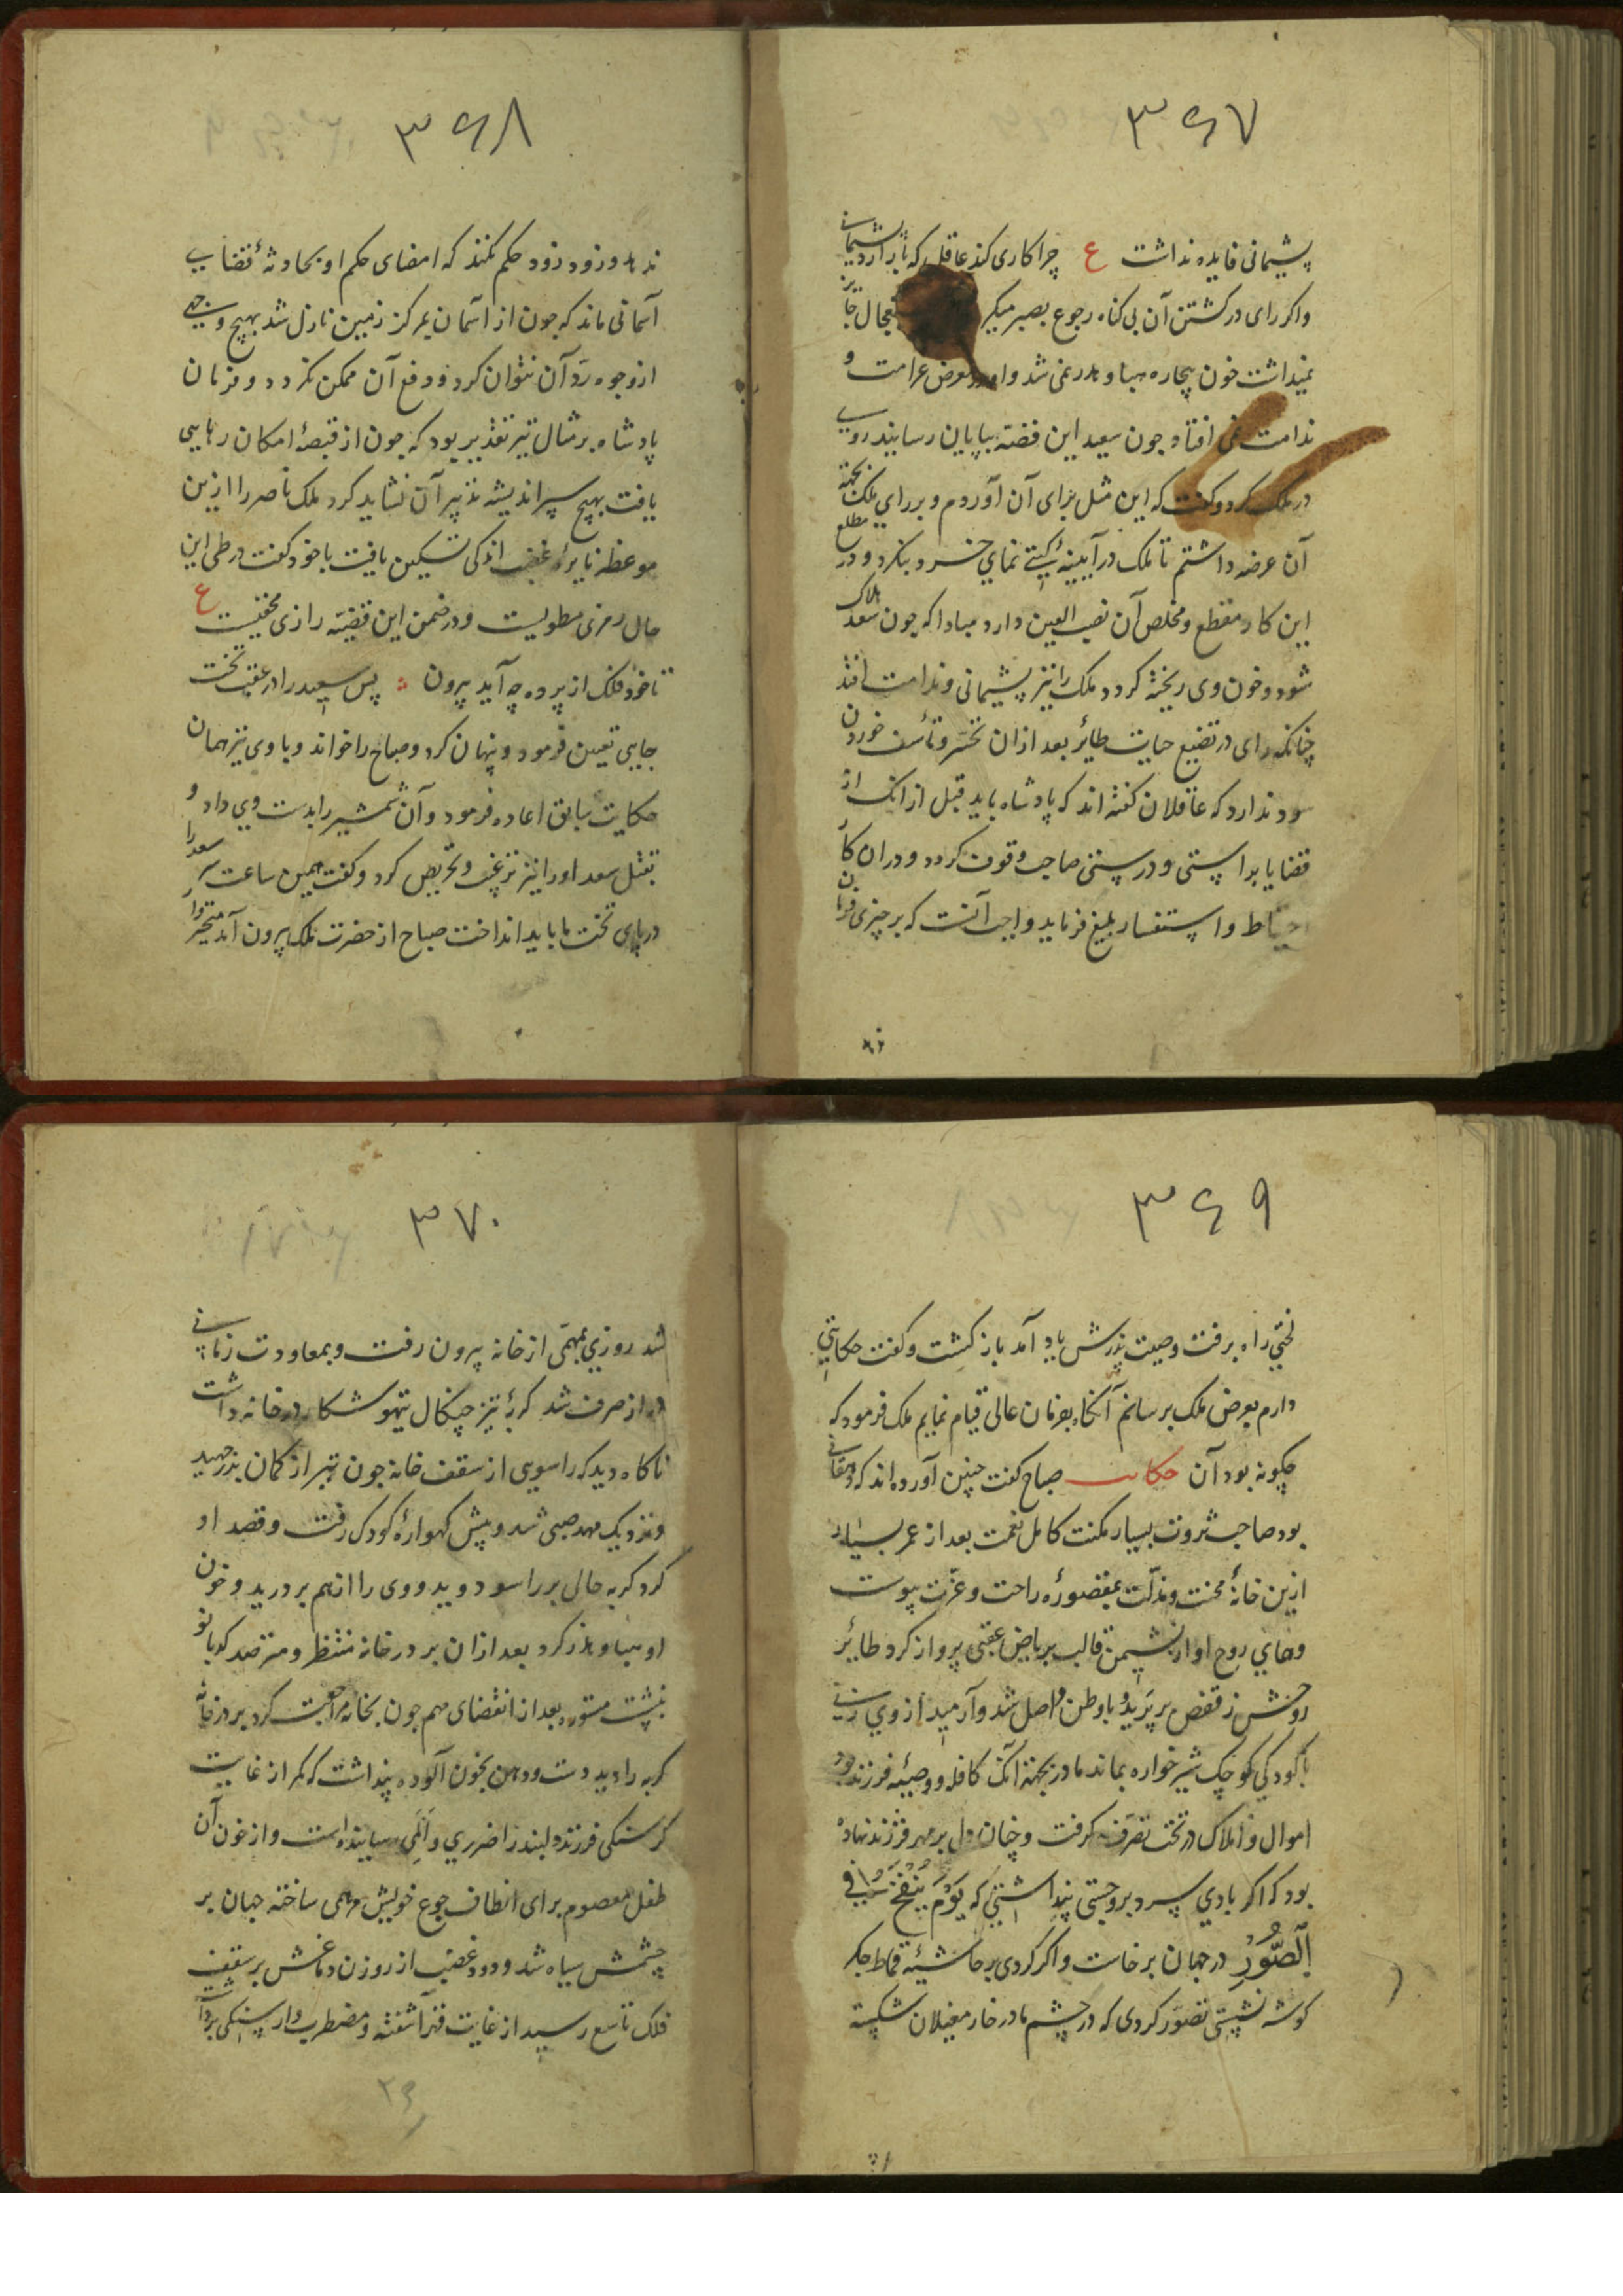 ۳۶۷
پشیمانی فایده نداشت ع چرا کاری کند عاقل که باز آرد پشیمانی
واکر رای در کشتن آن بی کناه رجوع بصبر میکرد تعجال جایز
نمیداشت خون بیچاره هبا و هدر نمی شد و او در معرض غرامت و
ندامت نمی افتاد چون سعید این قصه بپایان رسانید روی
در ملک کرد و کفت که این مثل برای آن آوردم و بر رای ملک بجهة
آن عرضه داشتم تا ملک در آیینهٔ کیتی نمای خرد بنکرد و در مطلع
این کار و مقطع و مخلص آن نصب العین دارد مبادا که چون سعد هلاک
شود و خون وی ریخته کردد ملک را نیز پشیمانی و ندامت افتد
چنانکه رای در تضییع حیات طائر بعد از آن تحسّر و تأسف خوردن
سود ندارد که عاقلان کفته اند که پادشاه باید قبل از آنک از
قضایا براستی و درستی صاحب وقوف کردد و در آن کار
احتیاط و استفسار بلیغ فرماید و واجب آنست که بر چیزی فرمان
۳۶۸
ندهد و زود زود حکم نکند که امضای حکم او بحادثهٔ قضایی
آسمانی ماند که چون از آسمان بمرکز زمین نازل شد بهیچ وجهی
از وجوه ردّ آن نتوان کرد و دفع آن ممکن نکردد و فرمان
پادشاه بر مثال تیر تقدیر بود که چون از قبضهٔ امکان رهایی
یافت بهیچ سپر اندیشه تدبیر آن نشاید کرد ملک ناصر را ازین
موعظه نایرهٔ غضب اندکی تسکین یافت با خود کفت در طی این
حال رمزی مطویست و در ضمن این قضیّه رازی مخفیست ع
تا خود فلک از پرده چه آید بیرون پس سعید را در عقب تخت
جایی تعیین فرمود و پنهان کرد و صباح را خواند و با وی نیز همان
حکایت سابق اعاده فرمود و آن شمشیر را بدست وی داد و
بقتل سعد او را نیز ترغیب و تحریض کرد و کفت همین ساعت سر سعد را
در پای تخت ما باید انداخت صباح از حضرت ملک بیرون آمد متحیّروار
۳۶۹
لختی راه برفت وصیت پدرش یاد آمد باز کشت و کفت حکایتی
دارم بعرض ملک برسانم آنکاه بفرمان عالی قیام نمایم ملک فرمود که
چکونه بود آن حکایت صباح کفت چنین آورده اند که دهقانی
بود صاحب ثروت بسیار مکنت کامل نعمت بعد از عمر بسیار
ازین خانهٔ محنت و مذلّت بمقصورهٔ راحت و عزّت پیوست
و همای روح او از نشیمن قالب بریاض عقبی پرواز کرد طائر
روحش ز قفص بر پرید و با وطن واصل شد و آرمید از وی زنی
با کودکی کوچک شیر خواره بماند مادر بجهة آنک کافله و وصیّه فرزند بود
اموال و املاک در تحت تصرّف کرفت و چنان دل بر مهر فرزند نهاده
بود که اکر بادی سرد بر وجستی پنداشتی که یَوْمَ یُنْفَخُ فِی
اَلصُّوْرِ در جهان برخاست و اکر کردی بر حاشیهٔ قماط جکر
کوشه نشستی تصوّر کردی که در چشم مادر خار مغیلان شکسته
۳۷۰
شد روزی بمهمّی از خانه بیرون رفت و بمعاودت زمانی
دراز صرف شد کربهٔ تیز چنکال تیهو شکار در خانه داشت
ناکاه دید که راسویی از سقف خانه چون تیر از کمان بدرجهید
و نزدیک مهد صبی شد و پیش کهوارهٔ کودک رفت و قصد او
کرد کربه حالی بر راسو دوید و وی را از هم بر درید و خون
او هبا و هدر کرد بعد از آن بر در خانه منتظر و مترصد کدبانو
بنشست مستوره بعد از انقضای مهم چون بخانه مراجعت کرد بر در خانه
کربه را دید دست و دهن بخون آلوده پنداشت که مکر از غایت
کرسنکی فرزند دلبند را ضرری و اَلَمی رسانیده است و از خون آن
طفل معصوم برای انطاف جوع خویش مرهمی ساخته جهان بر
چشمش سیاه شد و دود غضب از روزن دماغش بر سقف
فلک تاسع رسید از غایت قهر آشفته و مضطرب وار سنکی برداشت